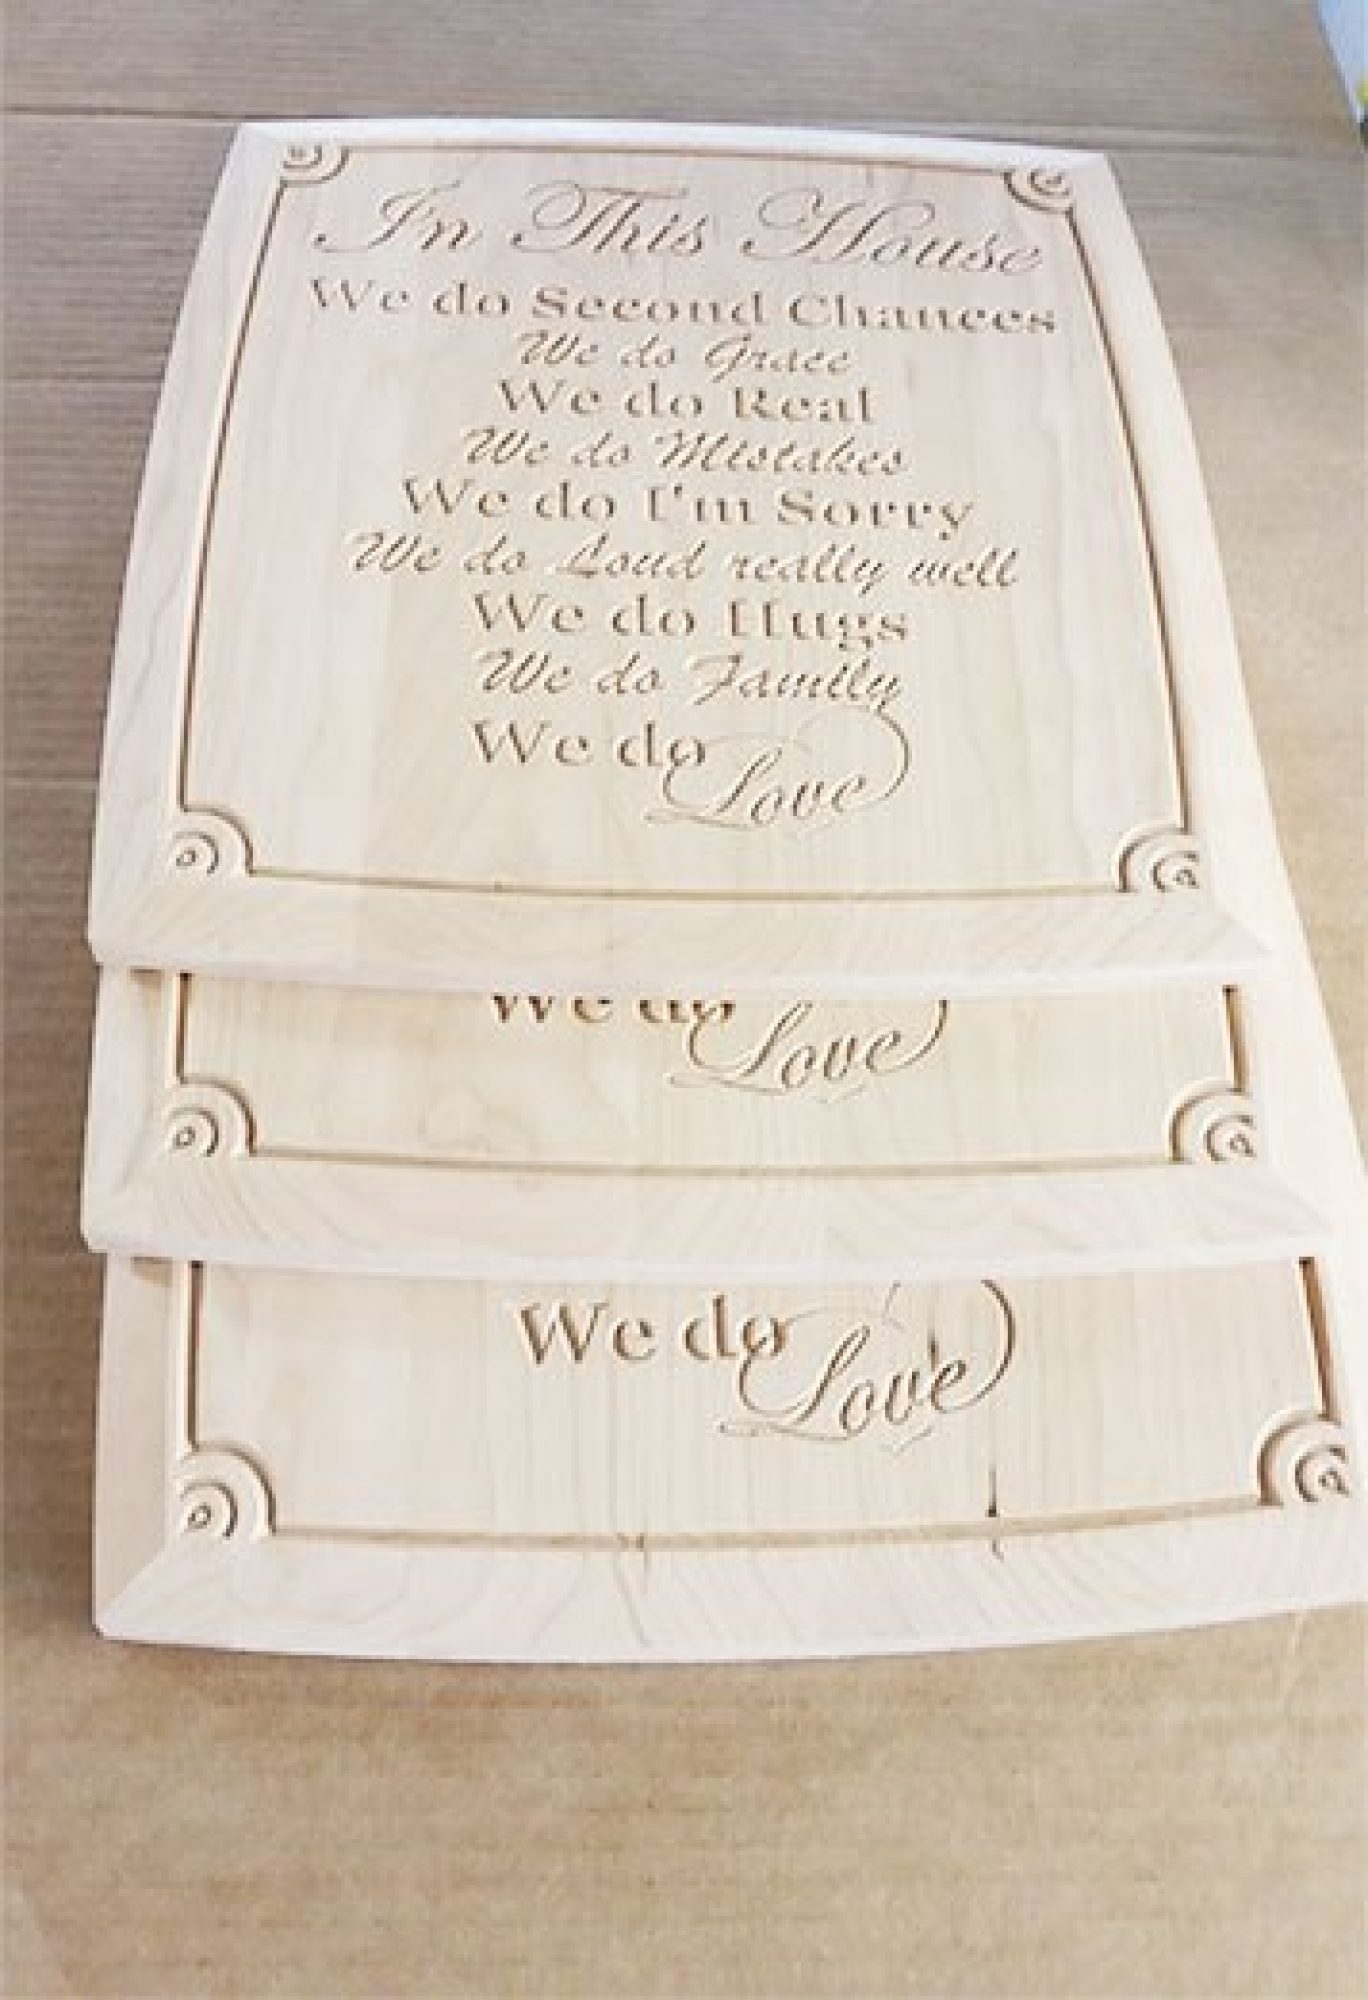 In This House
We do Second Chances
We do Grace
We do Real
We do Mistakes
We do I'm Sorry
We do Loud really well
We do Hugs
We do Family
We do Love
We do Love
We do Love